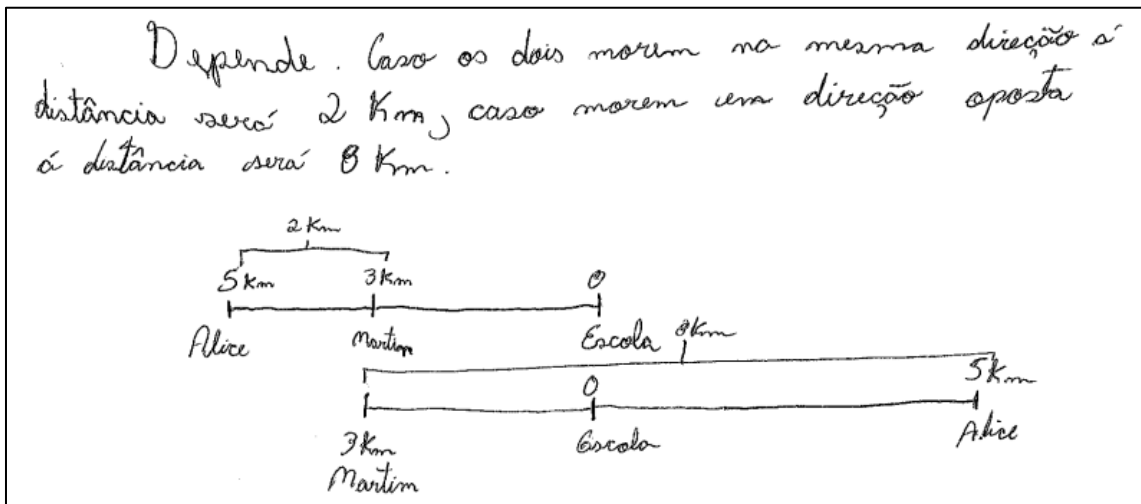 Depende. Caso os dois morem na mesma direção á
distância será 2 Km, caso morem em direção oposta
á distância será 8 Km.
2 Km
5 Km 3 Km 0
Alice Martim Escola
8 Km
0 5 Km
3 Km Escola Alice
Martim